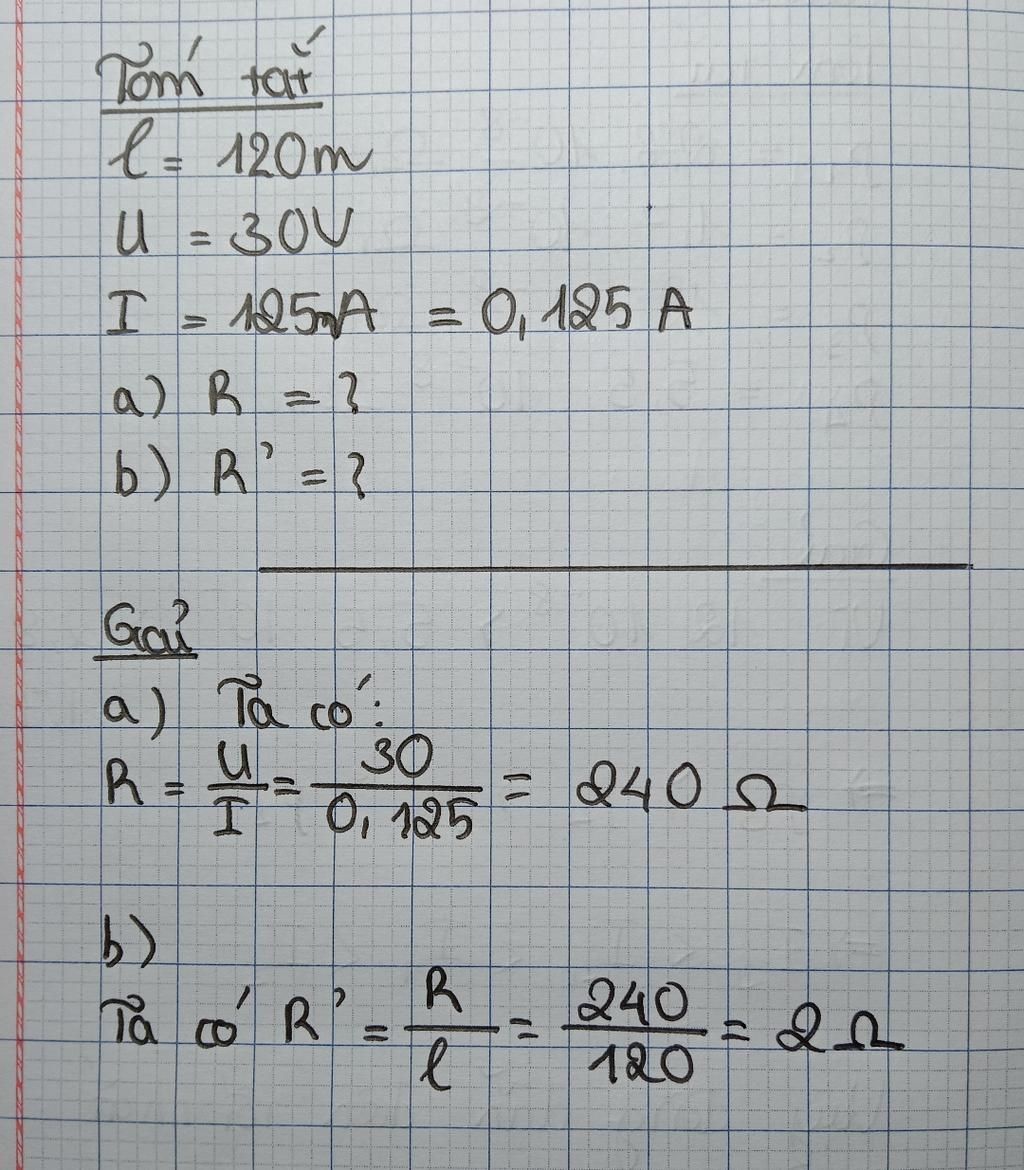 Tóm tắt
l = 120m
U = 30V
I = 125mA = 0,125 A
a) R = ?
b) R' = ?
Giải
a) Ta có:
R = U/I = 30/0,125 = 240 Ω
b)
Ta có R' = R/l = 240/120 = 2 Ω